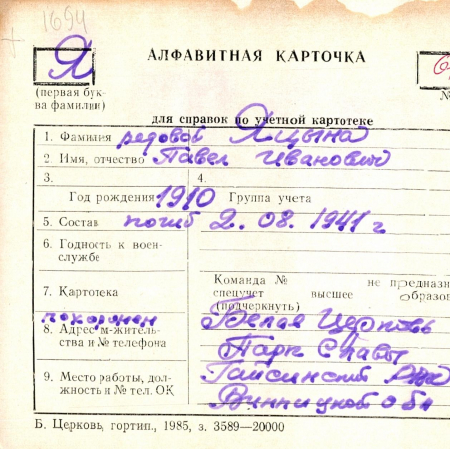 1694
Я
АЛФАВИТНАЯ КАРТОЧКА
(первая бук-
ва фамилии)
№
для справок по учетной картотеке
1. Фамилия рядовой Яцына
2. Имя, отчество Павел Иванович
3. 4.
Год рождения 1910 Группа учета
5. Состав погиб 2.08.1941 г
6. Годность к воен-
службе
Команда № не предназн
7. Картотека спецучет высшее образов
(подчеркнуть)
похоронен Белая Церковь
8. Адрес м-житель-
ства и № телефона Парк Славы
9. Место работы, дол- Гайсинский
жность и № тел. ОК Винницкой обл
Б. Церковь, гортип., 1985, з. 3589—20000